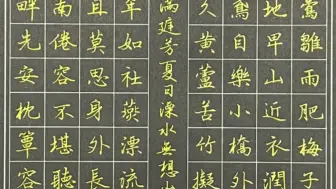 雛雨肥梅子
地卑山近衣潤
鳶自樂小橋外
久黃蘆苦竹擬
滿庭芳夏日溧水無想山
年如社燕漂流
且莫思身外長
南倦客不堪聽
畔先安枕簟容